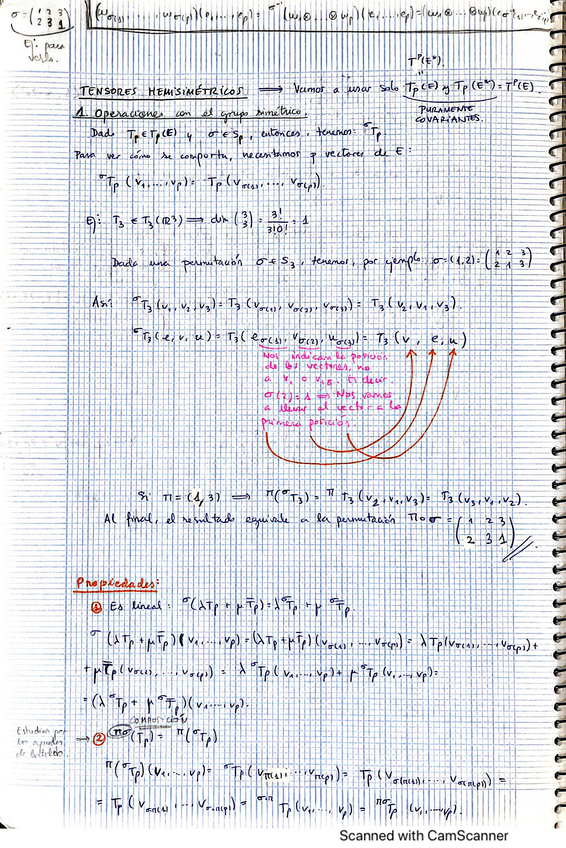 σ = (1 2 3 / 2 3 1)
(w_σ(1), ..., w_σ(p))(e_1, ..., e_p) = σ⁻¹(w_1⊗...⊗w_p)(e_1, ..., e_p) = (w_1⊗...⊗w_p)(e_σ⁻¹(1), ... e_σ⁻¹(p))
Ej: para
verlo.
T^p(E*).
TENSORES HEMISIMÉTRICOS ⟹ Vamos a usar solo T_p(E) y T_p(E*) = T^p(E).
PURAMENTE
COVARIANTES.
1. Operaciones con el grupo simétrico.
Dado T_p ∈ T_p(E) y σ ∈ S_p, entonces, tenemos: ^σT_p
Para ver cómo se comporta, necesitamos p vectores de E:
^σT_p(v_1, ..., v_p) = T_p(v_σ(1), ..., v_σ(p)).
Ej: T_3 ∈ T_3(ℝ³) ⟹ dim (3 / 3) = 3!/3!0! = 1
Dada una permutación σ ∈ S_3, tenemos, por ejemplo: σ = (1,2) = (1 2 3 / 2 1 3)
Así: ^σT_3(v_1, v_2, v_3) = T_3(v_σ(1), v_σ(2), v_σ(3)) = T_3(v_2, v_1, v_3).
^σT_3(e, v, u) = T_3(e_σ(1), v_σ(2), u_σ(3)) = T_3(v, e, u)
Nos indican la posición
de los vectores, no
a v_1 o v_2. Es decir,
σ(2) = 1 ⟹ Nos vamos
a llevar el vector a la
primera posición
Si Π = (1,3) ⟹ Π(^σT_3) = ^Π T_3(v_2, v_1, v_3) = T_3(v_3, v_1, v_2).
Al final, el resultado equivale a la permutación Π∘σ = (1 2 3 / 2 3 1)
Propiedades:
① Es lineal: ^σ(λT_p + μT̄_p) = λ^σT_p + μ^σT̄_p.
^σ(λT_p + μT̄_p)(v_1, ..., v_p) = (λT_p + μT̄_p)(v_σ(1), ..., v_σ(p)) = λT_p(v_σ(1), ..., v_σ(p)) +
+ μT̄_p(v_σ(1), ..., v_σ(p)) = λ^σT_p(v_1, ..., v_p) + μ^σT̄_p(v_1, ..., v_p) =
= (λ^σT_p + μ^σT̄_p)(v_1, ..., v_p).
COMPOSICIÓN
Estudiar por
los apuntes
② ^Πσ(T_p) = ^Π(^σT_p)
^Π(^σT_p)(v_1, ..., v_p) = ^σT_p(v_Π(1), ..., v_Π(p)) = T_p(v_σ(Π(1)), ..., v_σ(Π(p))) =
= T_p(v_σΠ(1), ..., v_σΠ(p)) = ^σΠT_p(v_1, ..., v_p) = ^ΠσT_p(v_1, ..., v_p).
Scanned with CamScanner